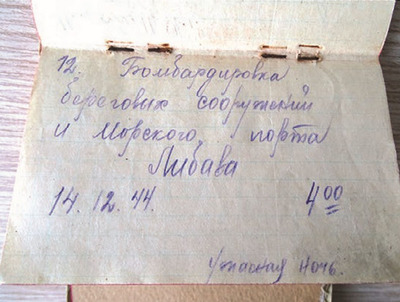 12. Бомбардировка
береговых сооружений
и морского порта
Либава
14.12.44. 4 00
Ужасная ночь.